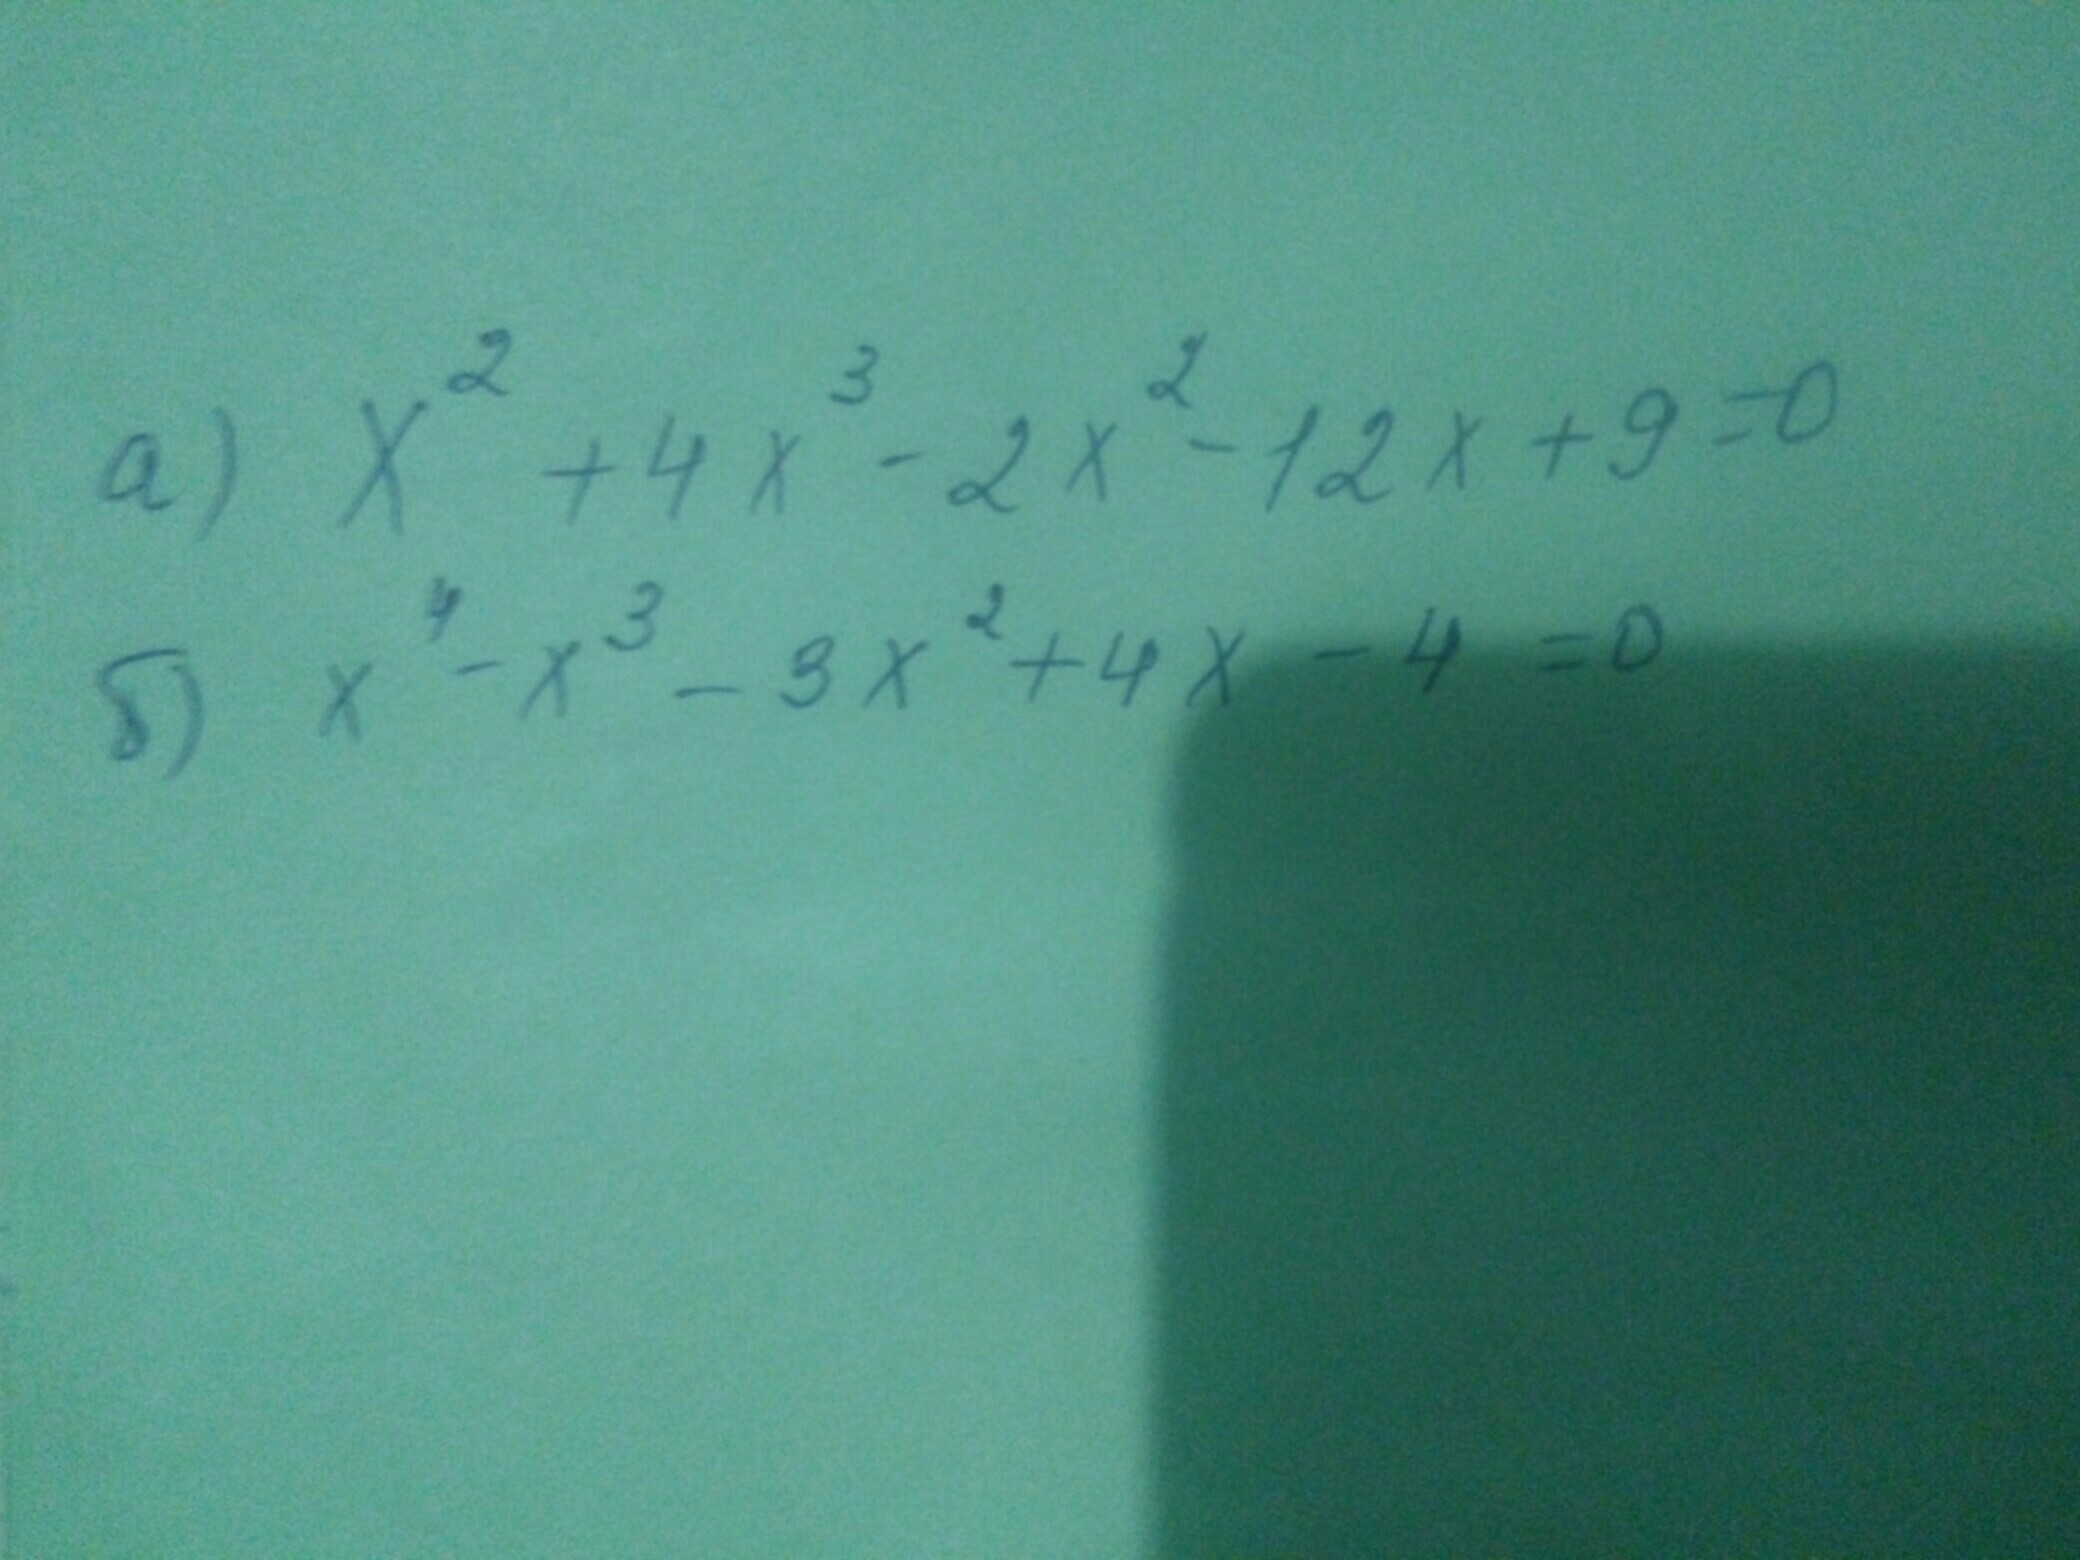 а) x² + 4x³ - 2x² - 12x + 9 = 0
б) x⁴ - x³ - 3x² + 4x - 4 = 0